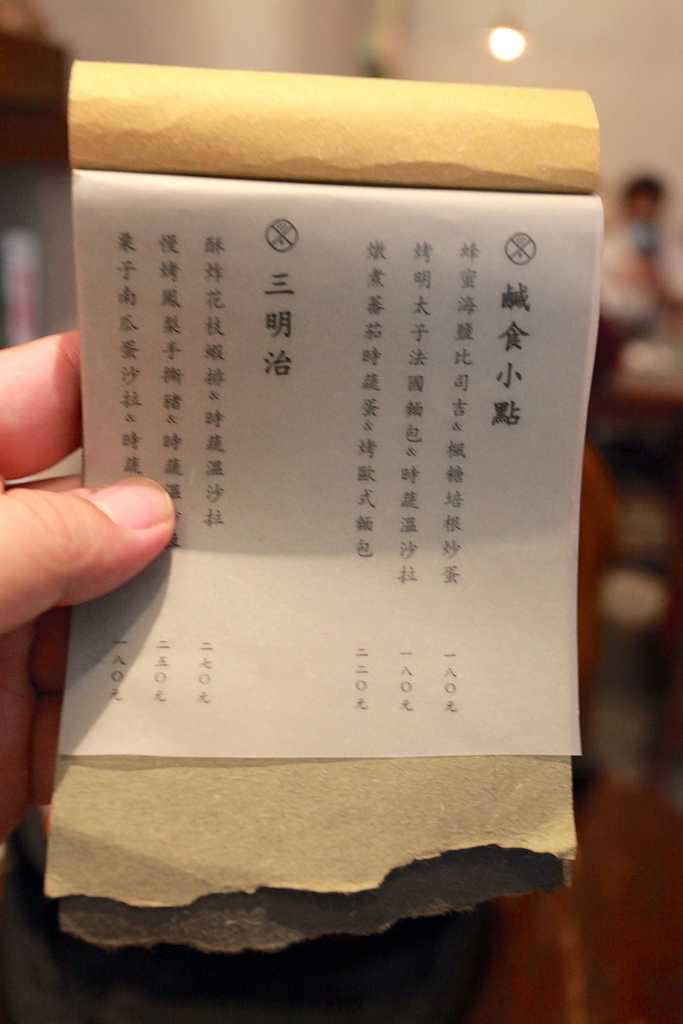 鹹食小點
蜂蜜海鹽比司吉&楓糖培根炒蛋 一八〇元
烤明太子法國麵包&時蔬溫沙拉 一八〇元
燉煮蕃茄時蔬蛋&烤歐式麵包 二二〇元
三明治
酥炸花枝蝦排&時蔬溫沙拉 二七〇元
慢烤鳳梨手撕豬&時蔬溫 二五〇元
栗子南瓜蛋沙拉&時蔬 一八〇元